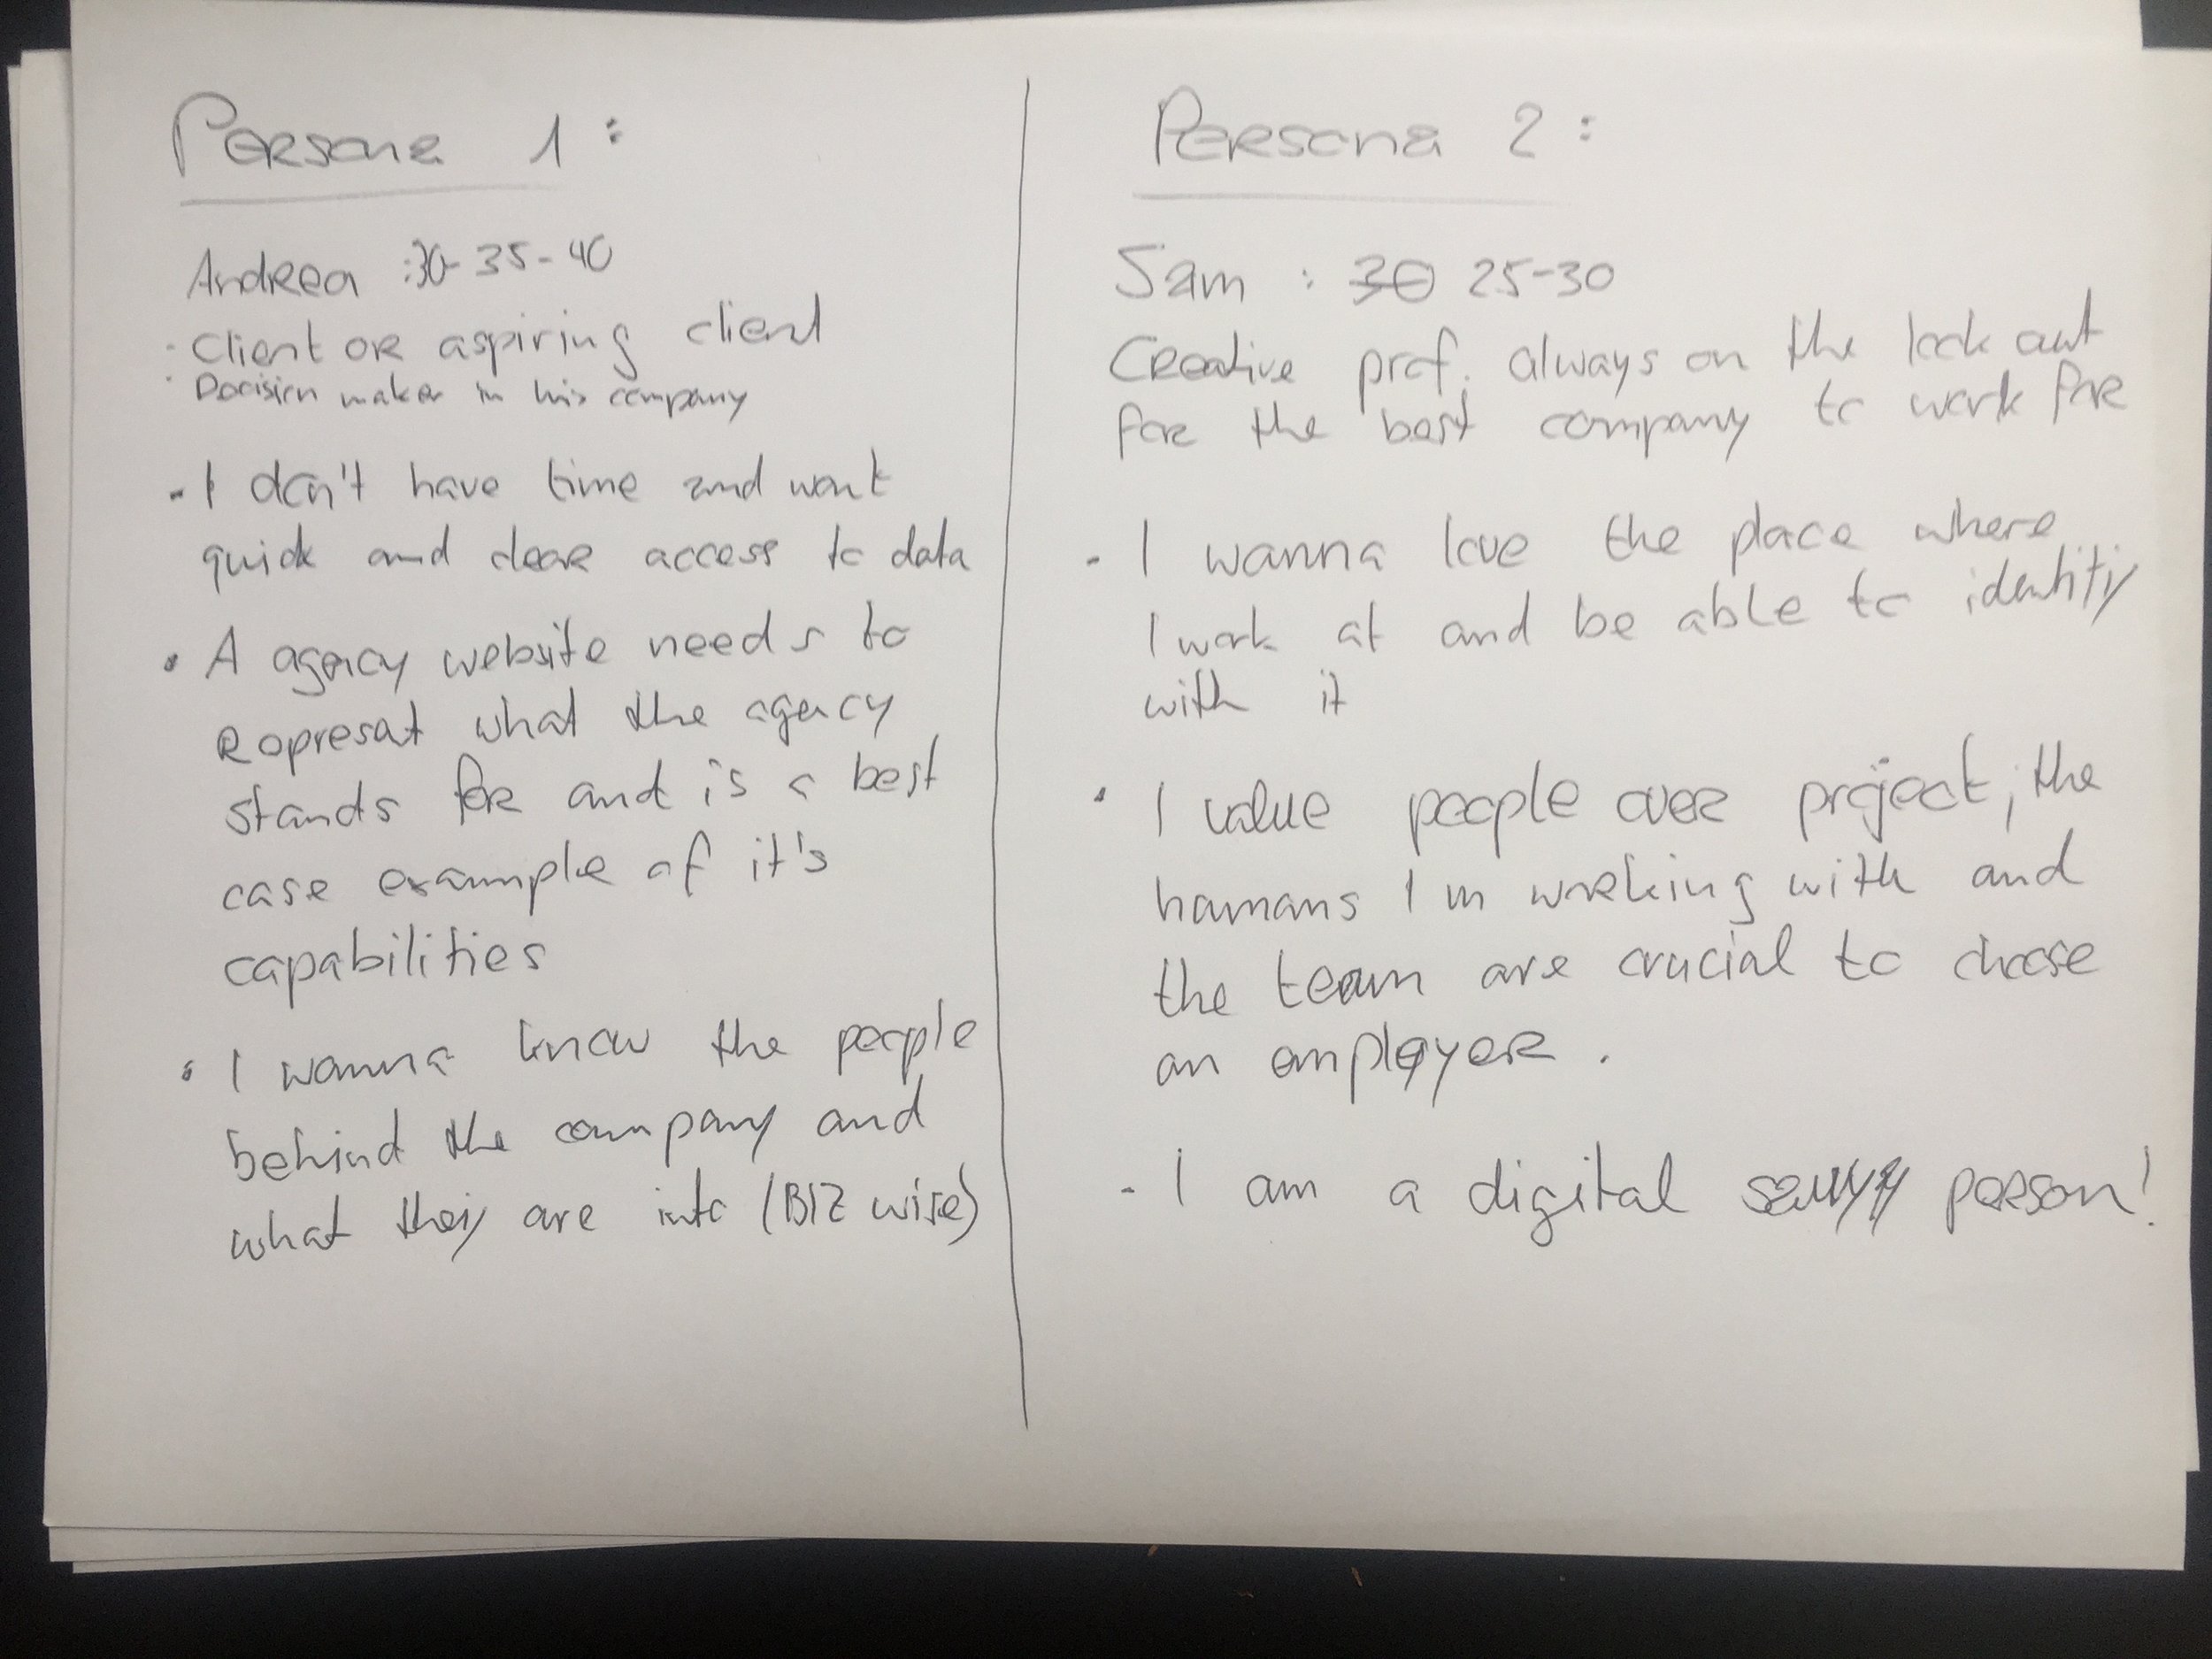 Persona 1 :
Andrea : 30-35-40
- Client or aspiring client
- Decision maker in his company
- I don't have time and want
quick and clear access to data
• A agency website needs to
represat what the agency
stands for and is a best
case example of it's
capabilities
• I wanna know the people
behind the company and
what they are into (BIZ wise)
Persona 2 :
Sam : 30 25-30
Creative prof. always on the look out
for the best company to work for
- I wanna love the place where
I work at and be able to identity
with it
• I value people over project, the
humans I'm working with and
the team are crucial to choose
an employer.
- I am a digital savvy person!